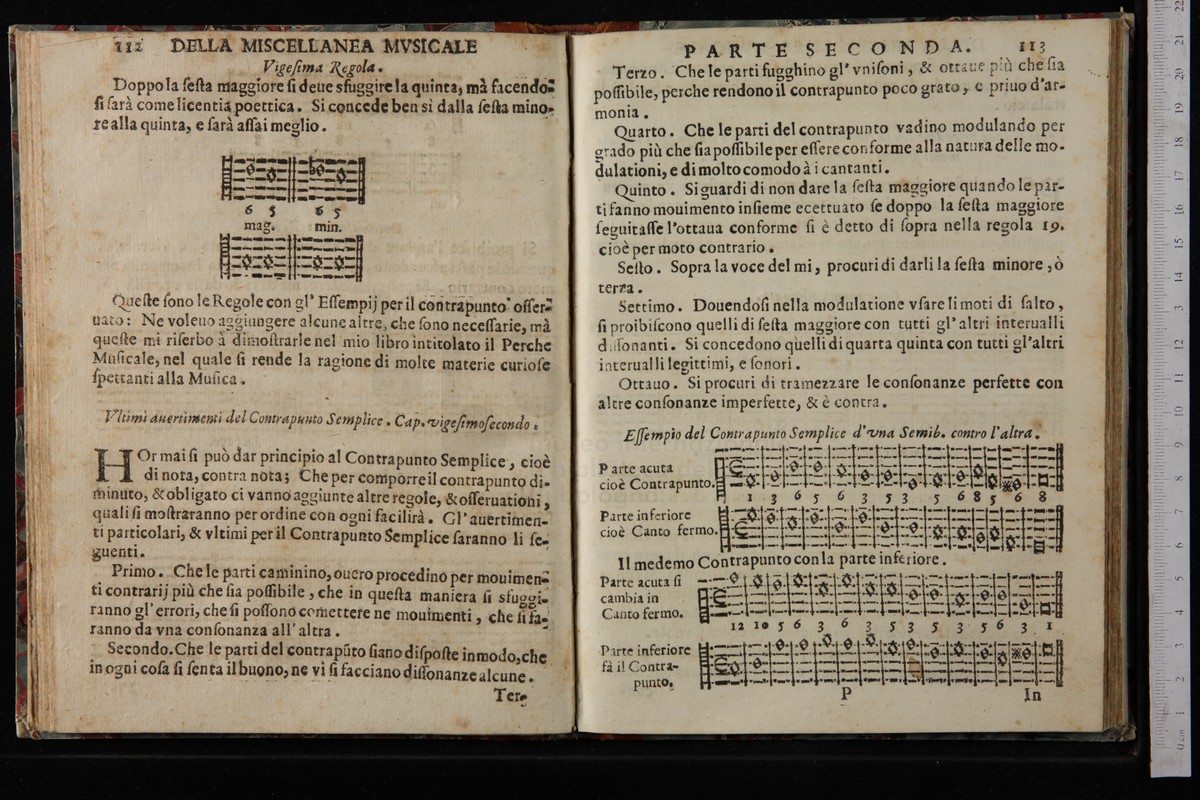 112 DELLA MISCELLANEA MVSICALE
Vigesima Regola.
Doppo la sesta maggiore si deue sfuggire la quinta, mà facendo-
si sarà come licentia poettica. Si concede ben sì dalla sesta mino-
re alla quinta, e sarà assai meglio.
6 5 6 5
mag. min.
Queste sono le Regole con gl' Essempij per il contrapunto osser-
uato: Ne voleuo aggiungere alcune altre, che sono necessarie, mà
queste mi riserbo à dimostrarle nel mio libro intitolato il Perche
Musicale, nel quale si rende la ragione di molte materie curiose
spettanti alla Musica.
Vltimi auertimenti del Contrapunto Semplice. Cap. vigesimosecondo.
HOr mai si può dar principio al Contrapunto Semplice, cioè
di nota, contra nota; Che per comporre il contrapunto di-
minuto, & obligato ci vanno aggiunte altre regole, & osseruationi,
quali si mostraranno per ordine con ogni facilità. Gl' auertimen-
ti particolari, & vltimi per il Contrapunto Semplice saranno li se-
guenti.
Primo. Che le parti caminino, ouero procedino per mouimen-
ti contrarij più che sia possibile, che in questa maniera si sfuggi-
ranno gl' errori, che si possono comettere ne mouimenti, che si fa-
ranno da vna consonanza all' altra.
Secondo. Che le parti del contrapũto siano disposte in modo, che
in ogni cosa si senta il buono, ne vi si facciano dissonanze alcune.
Ter-
PARTE SECONDA. 113
Terzo. Che le parti fugghino gl' vnisoni, & ottaue più che sia
possibile, perche rendono il contrapunto poco grato, e priuo d'ar-
monia.
Quarto. Che le parti del contrapunto vadino modulando per
grado più che sia possibile per essere conforme alla natura delle mo-
dulationi, e di molto comodo à i cantanti.
Quinto. Si guardi di non dare la sesta maggiore quando le par-
ti fanno mouimento insieme eccettuato se doppo la sesta maggiore
seguitasse l'ottaua conforme si è detto di sopra nella regola 19.
cioè per moto contrario.
Sesto. Sopra la voce del mi, procuri di darli la sesta minore, ò
terza.
Settimo. Douendosi nella modulatione vsare li moti di salto,
si proibiscono quelli di sesta maggiore con tutti gl' altri interualli
dissonanti. Si concedono quelli di quarta quinta con tutti gl'altri
interualli legittimi, e sonori.
Ottauo. Si procuri di tramezzare le consonanze perfette con
altre consonanze imperfette, & è contra.
Essempio del Contrapunto Semplice d'vna Semib. contro l'altra.
Parte acuta
cioè Contrapunto.
1 3 6 5 6 3 5 3 5 6 8 5 6 8
Parte inferiore
cioè Canto fermo.
Il medemo Contrapunto con la parte inferiore.
Parte acuta si
cambia in
Canto fermo.
12 10 5 6 3 6 3 5 3 5 3 5 6 3 1
Parte inferiore
fà il Contra-
punto.
P In